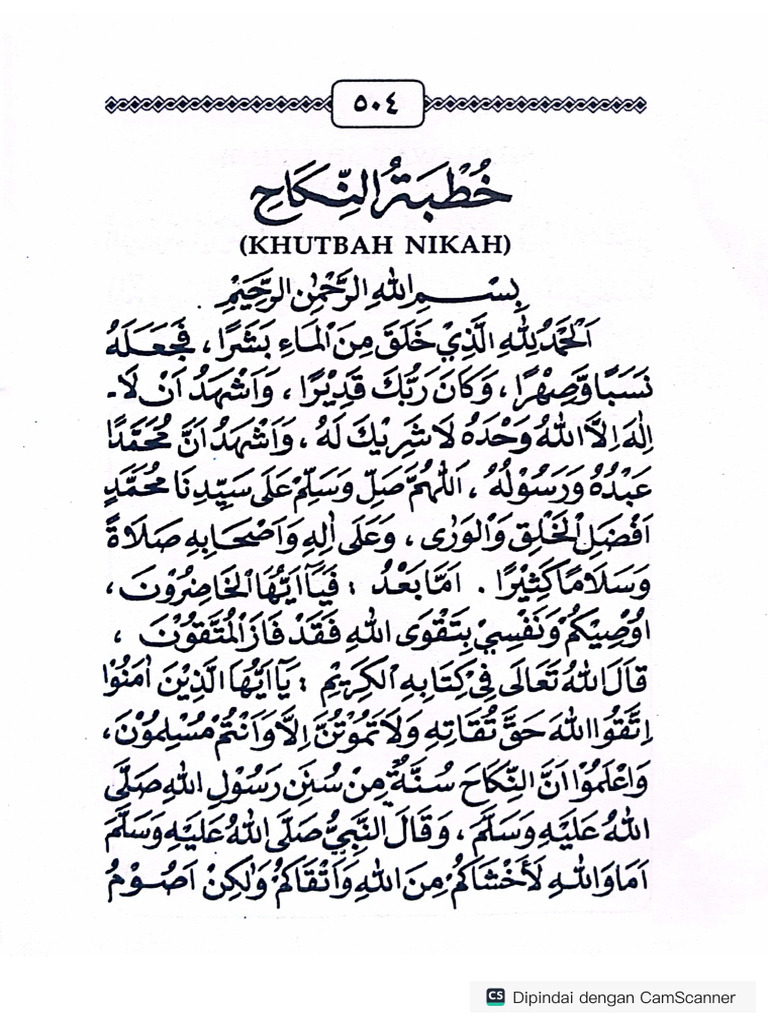 ٥٠٤
خُطْبَةُ النِّكَاحِ
(KHUTBAH NIKAH)
بِسْمِ اللهِ الرَّحْمٰنِ الرَّحِيْمِ .
اَلْحَمْدُ لِلّٰهِ الَّذِيْ خَلَقَ مِنَ الْمَاءِ بَشَرًا ، فَجَعَلَهُ
نَسَبًا وَّصِهْرًا ، وَكَانَ رَبُّكَ قَدِيْرًا ، وَاَشْهَدُ اَنْ لَا-
اِلٰهَ اِلَّا اللهُ وَحْدَهُ لَا شَرِيْكَ لَهُ ، وَاَشْهَدُ اَنَّ مُحَمَّدًا
عَبْدُهُ وَرَسُوْلُهُ ، اَللّٰهُمَّ صَلِّ وَسَلِّمْ عَلَى سَيِّدِنَا مُحَمَّدٍ
اَفْضَلِ الْخَلْقِ وَالْوَرٰى ، وَعَلَى اٰلِهِ وَاَصْحَابِهِ صَلَاةً
وَسَلَامًا كَثِيْرًا . اَمَّا بَعْدُ : فَيَآ اَيُّهَا الْحَاضِرُوْنَ ،
اُوْصِيْكُمْ وَنَفْسِيْ بِتَقْوَى اللهِ فَقَدْ فَازَ الْمُتَّقُوْنَ ،
قَالَ اللهُ تَعَالَى فِيْ كِتَابِهِ الْكَرِيْمِ : يَآ اَيُّهَا الَّذِيْنَ اٰمَنُوْا
اِتَّقُوا اللهَ حَقَّ تُقَاتِهِ وَلَا تَمُوْتُنَّ اِلَّا وَاَنْتُمْ مُّسْلِمُوْنَ ،
وَاعْلَمُوْا اَنَّ النِّكَاحَ سُنَّةٌ مِنْ سُنَنِ رَسُوْلِ اللهِ صَلَّى
اللهُ عَلَيْهِ وَسَلَّمَ ، وَقَالَ النَّبِيُّ صَلَّى اللهُ عَلَيْهِ وَسَلَّمَ
اَمَا وَاللهِ لَأَخْشَاكُمْ مِنَ اللهِ وَاَتْقَاكُمْ وَلٰكِنْ اَصُوْمُ
CS Dipindai dengan CamScanner